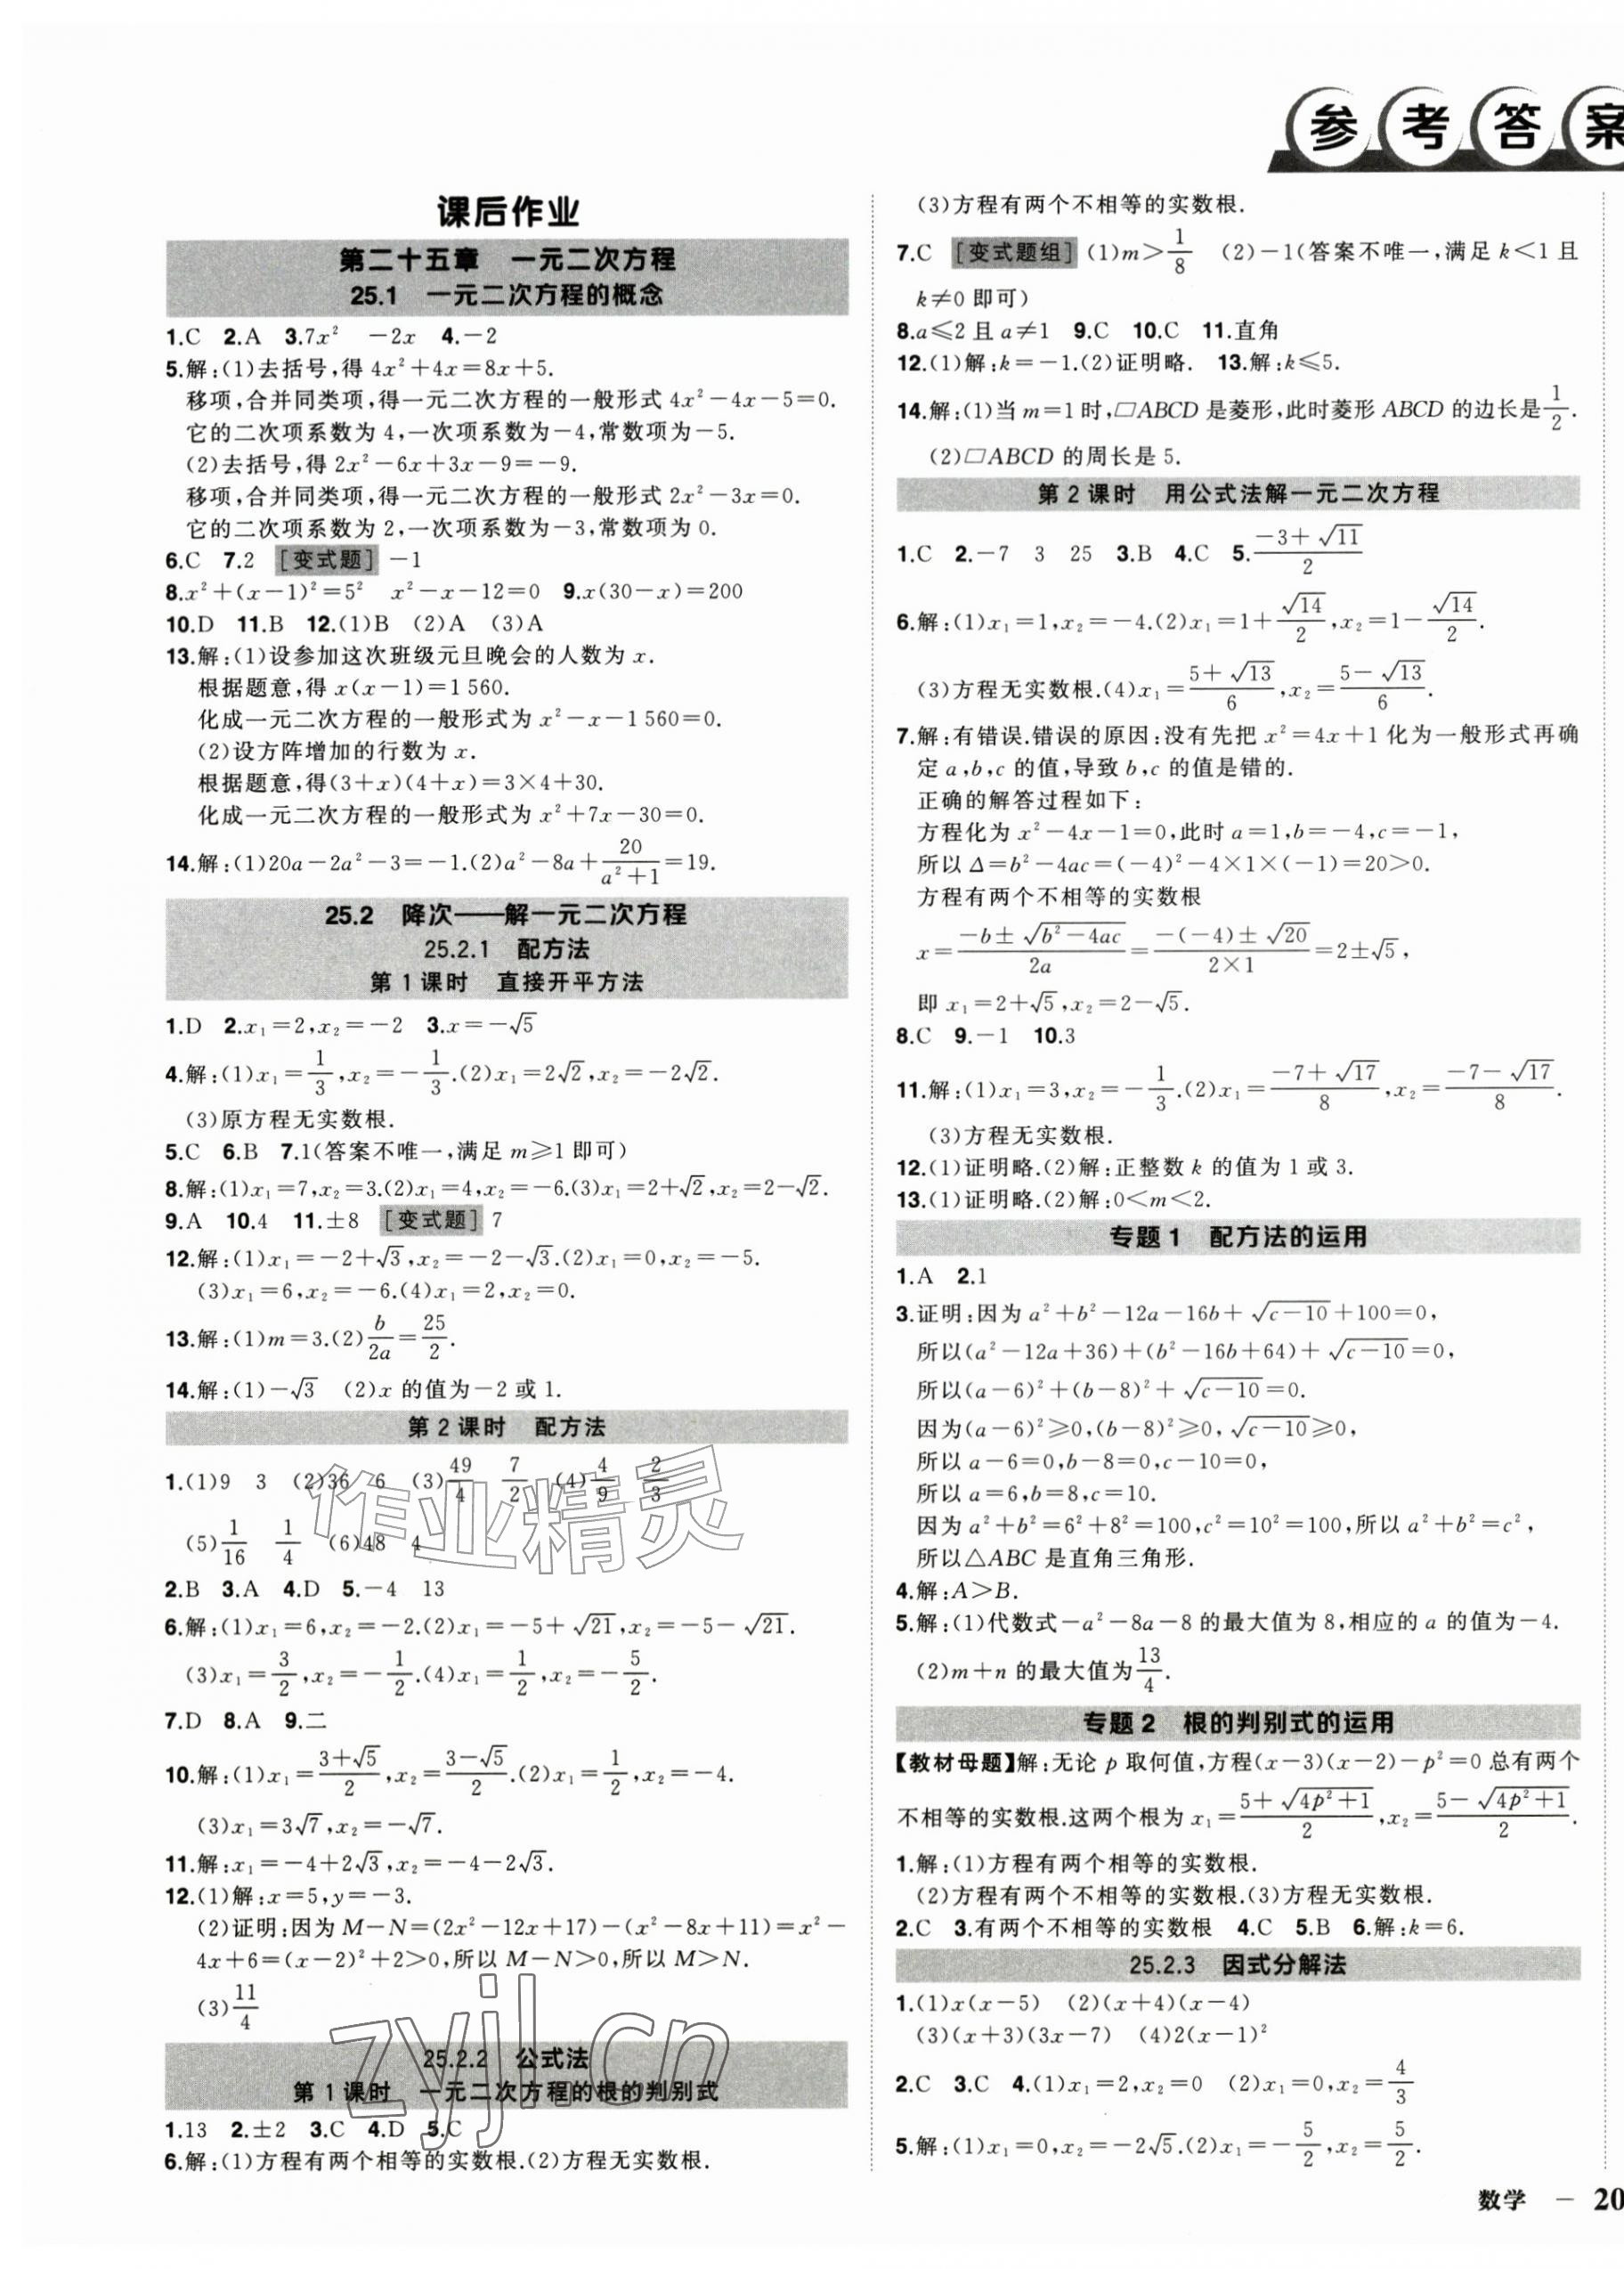 参考答案
课后作业
第二十五章 一元二次方程
25.1 一元二次方程的概念
1.C 2.A 3.7x² －2x 4.－2
5.解:(1)去括号,得 4x²＋4x＝8x＋5.
移项,合并同类项,得一元二次方程的一般形式 4x²－4x－5＝0.
它的二次项系数为 4,一次项系数为－4,常数项为－5.
(2)去括号,得 2x²－6x＋3x－9＝－9.
移项,合并同类项,得一元二次方程的一般形式 2x²－3x＝0.
它的二次项系数为 2,一次项系数为－3,常数项为 0.
6.C 7.2 [变式题]－1
8.x²＋(x－1)²＝5² x²－x－12＝0 9.x(30－x)＝200
10.D 11.B 12.(1)B (2)A (3)A
13.解:(1)设参加这次班级元旦晚会的人数为 x.
根据题意,得 x(x－1)＝1 560.
化成一元二次方程的一般形式为 x²－x－1 560＝0.
(2)设方阵增加的行数为 x.
根据题意,得(3＋x)(4＋x)＝3×4＋30.
化成一元二次方程的一般形式为 x²＋7x－30＝0.
14.解:(1)20a－2a²－3＝－1.(2)a²－8a＋20/(a²＋1)＝19.
25.2 降次——解一元二次方程
25.2.1 配方法
第 1 课时 直接开平方法
1.D 2.x₁＝2,x₂＝－2 3.x＝－√5
4.解:(1)x₁＝1/3,x₂＝－1/3.(2)x₁＝2√2,x₂＝－2√2.
(3)原方程无实数根.
5.C 6.B 7.1(答案不唯一,满足 m≥1 即可)
8.解:(1)x₁＝7,x₂＝3.(2)x₁＝4,x₂＝－6.(3)x₁＝2＋√2,x₂＝2－√2.
9.A 10.4 11.±8 [变式题] 7
12.解:(1)x₁＝－2＋√3,x₂＝－2－√3.(2)x₁＝0,x₂＝－5.
(3)x₁＝6,x₂＝－6.(4)x₁＝2,x₂＝0.
13.解:(1)m＝3.(2)b/2a＝25/2.
14.解:(1)－√3 (2)x 的值为－2 或 1.
第 2 课时 配方法
1.(1)9 3 (2)36 6 (3)49/4 7/2 (4)4/9 2/3
(5)1/16 1/4 (6)48 4
2.B 3.A 4.D 5.－4 13
6.解:(1)x₁＝6,x₂＝－2.(2)x₁＝－5＋√21,x₂＝－5－√21.
(3)x₁＝3/2,x₂＝－1/2.(4)x₁＝1/2,x₂＝－5/2.
7.D 8.A 9.二
10.解:(1)x₁＝(3＋√5)/2,x₂＝(3－√5)/2.(2)x₁＝1/2,x₂＝－4.
(3)x₁＝3√7,x₂＝－√7.
11.解:x₁＝－4＋2√3,x₂＝－4－2√3.
12.(1)解:x＝5,y＝－3.
(2)证明:因为 M－N＝(2x²－12x＋17)－(x²－8x＋11)＝x²－
4x＋6＝(x－2)²＋2＞0,所以 M－N＞0,所以 M＞N.
(3)11/4
25.2.2 公式法
第 1 课时 一元二次方程的根的判别式
1.13 2.±2 3.C 4.D 5.C
6.解:(1)方程有两个相等的实数根.(2)方程无实数根.
(3)方程有两个不相等的实数根.
7.C [变式题组](1)m＞1/8 (2)－1(答案不唯一,满足 k＜1 且
k≠0 即可)
8.a≤2 且 a≠1 9.C 10.C 11.直角
12.(1)解:k＝－1.(2)证明略. 13.解:k≤5.
14.解:(1)当 m＝1 时,▱ABCD 是菱形,此时菱形 ABCD 的边长是1/2.
(2)▱ABCD 的周长是 5.
第 2 课时 用公式法解一元二次方程
1.C 2.－7 3 25 3.B 4.C 5.(－3＋√11)/2
6.解:(1)x₁＝1,x₂＝－4.(2)x₁＝1＋√14/2,x₂＝1－√14/2.
(3)方程无实数根.(4)x₁＝(5＋√13)/6,x₂＝(5－√13)/6.
7.解:有错误.错误的原因:没有先把 x²＝4x＋1 化为一般形式再确
定 a,b,c 的值,导致 b,c 的值是错的.
正确的解答过程如下:
方程化为 x²－4x－1＝0,此时 a＝1,b＝－4,c＝－1,
所以 Δ＝b²－4ac＝(－4)²－4×1×(－1)＝20＞0.
方程有两个不相等的实数根
x＝(－b±√(b²－4ac))/2a＝(－(－4)±√20)/(2×1)＝2±√5,
即 x₁＝2＋√5,x₂＝2－√5.
8.C 9.－1 10.3
11.解:(1)x₁＝3,x₂＝－1/3.(2)x₁＝(－7＋√17)/8,x₂＝(－7－√17)/8.
(3)方程无实数根.
12.(1)证明略.(2)解:正整数 k 的值为 1 或 3.
13.(1)证明略.(2)解:0＜m＜2.
专题 1 配方法的运用
1.A 2.1
3.证明:因为 a²＋b²－12a－16b＋√(c－10)＋100＝0,
所以(a²－12a＋36)＋(b²－16b＋64)＋√(c－10)＝0,
所以(a－6)²＋(b－8)²＋√(c－10)＝0.
因为(a－6)²≥0,(b－8)²≥0,√(c－10)≥0,
所以 a－6＝0,b－8＝0,c－10＝0,
所以 a＝6,b＝8,c＝10.
因为 a²＋b²＝6²＋8²＝100,c²＝10²＝100,所以 a²＋b²＝c²,
所以△ABC 是直角三角形.
4.解:A＞B.
5.解:(1)代数式－a²－8a－8 的最大值为 8,相应的 a 的值为－4.
(2)m＋n 的最大值为13/4.
专题 2 根的判别式的运用
【教材母题】解:无论 p 取何值,方程(x－3)(x－2)－p²＝0 总有两个
不相等的实数根.这两个根为 x₁＝(5＋√(4p²＋1))/2,x₂＝(5－√(4p²＋1))/2.
1.解:(1)方程有两个相等的实数根.
(2)方程有两个不相等的实数根.(3)方程无实数根.
2.C 3.有两个不相等的实数根 4.C 5.B 6.解:k＝6.
25.2.3 因式分解法
1.(1)x(x－5) (2)(x＋4)(x－4)
(3)(x＋3)(3x－7) (4)2(x－1)²
2.C 3.C 4.(1)x₁＝2,x₂＝0 (2)x₁＝0,x₂＝4/3
5.解:(1)x₁＝0,x₂＝－2√5.(2)x₁＝－5/2,x₂＝5/2.
数学 － 20
作业精灵
zyjl.cn